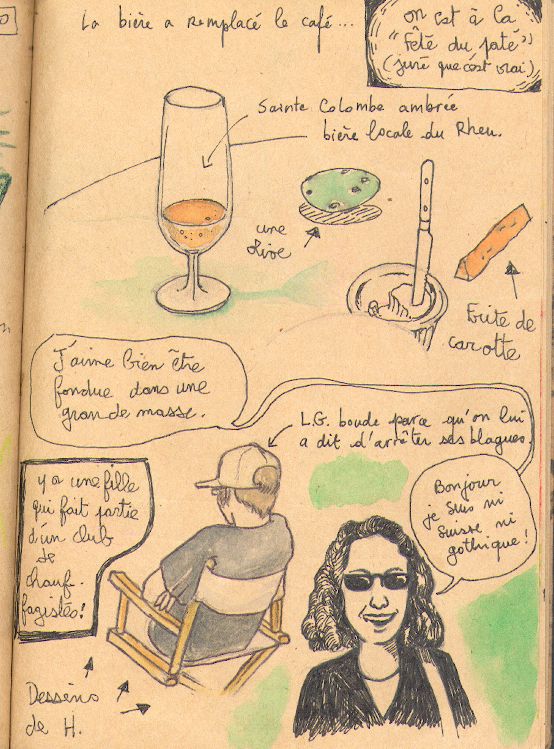 La bière a remplacé le café...
on est à la
"Fête du pâté"
(juré que c'est vrai)
Sainte Colombe ambrée
bière locale du Rheu.
une
olive
Frite de
carotte
J'aime bien être
fondue dans une
grande masse.
L.G. boude parce qu'on lui
a dit d'arrêter ses blagues
Bonjour
je suis ni
suisse ni
gothique!
y a une fille
qui fait partie
d'un club
de
chauf-
fagistes!
Dessins
de H.